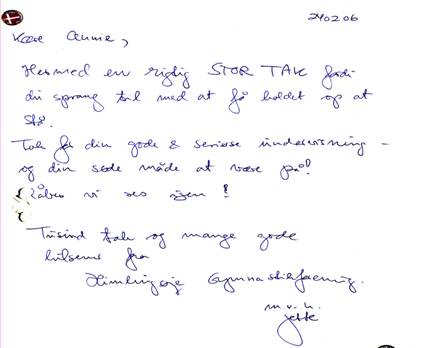 240206
Kære Anne,
Hermed en rigtig STOR TAK fordi
du sprang til med at få holdet op at
stå.
Tak for din gode & seriøse undervisning -
og din søde måde at være på!
Håber vi ses igen!
Tusind tak og mange gode
hilsner fra
Himlingøje Gymnastikforening.
m.v.h.
Jette